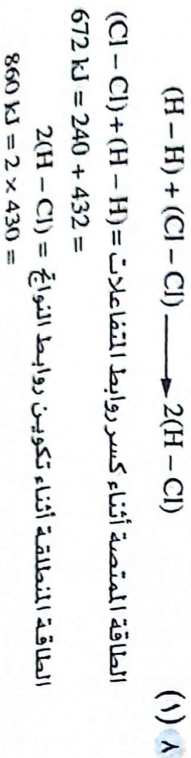 ٨ (١) (H – H) + (Cl – Cl) ⟶ 2(H – Cl)
الطاقة الممتصة أثناء كسر روابط المتفاعلات = (H – H) + (Cl – Cl)
= 432 + 240 = 672 kJ
الطاقة المنطلقة أثناء تكوين روابط النواتج = 2(H – Cl)
= 430 × 2 = 860 kJ